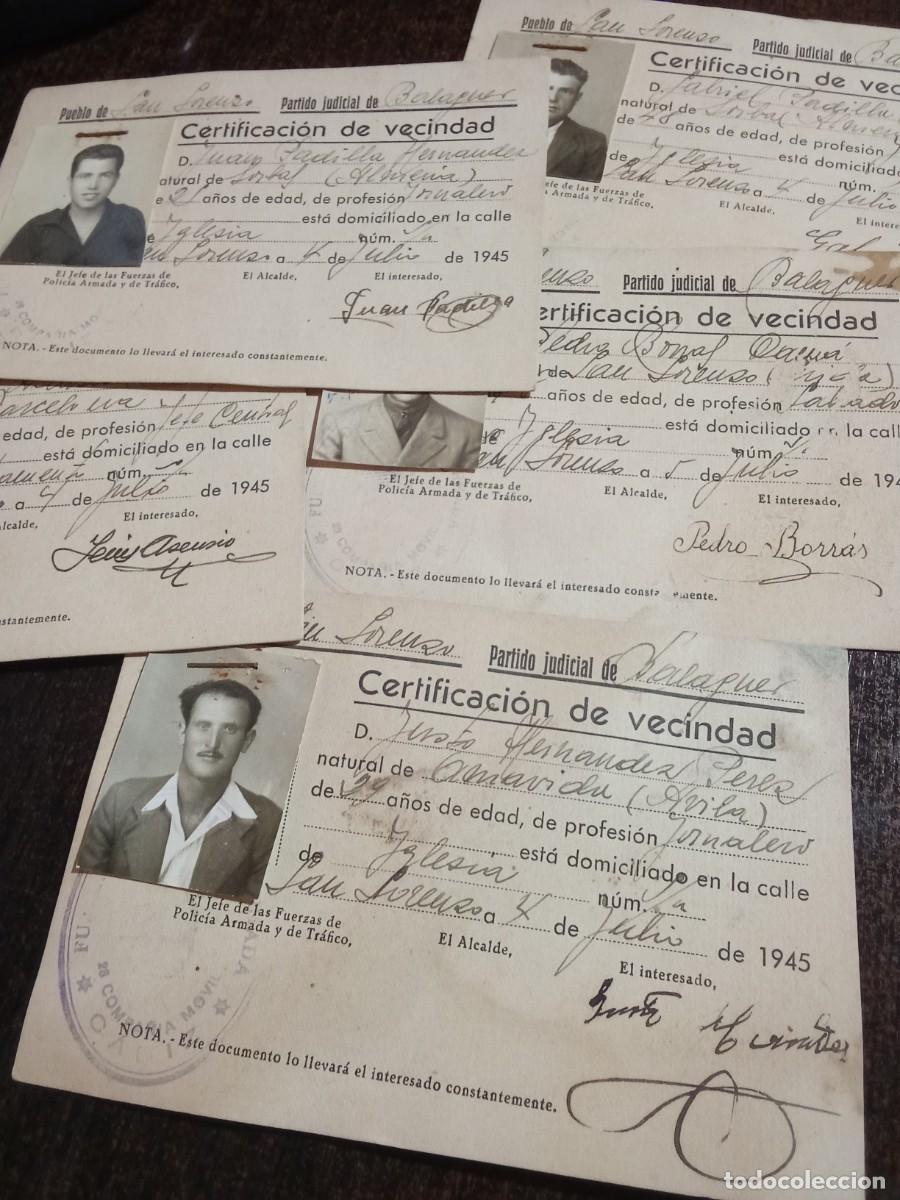 Pueblo de San Lorenzo Partido judicial de Balaguer
Certificación de vecindad
D. Juan Padilla Hernandez
natural de Sorbas (Almeria)
e 21 años de edad, de profesión Jornalero
está domiciliado en la calle
Iglesia núm. S/n
San Lorenzo a 4 de Julio de 1945
El Jefe de las Fuerzas de
Policía Armada y de Tráfico,
El Alcalde,
El interesado,
Juan Padilla
NOTA. - Este documento lo llevará el interesado constantemente.
Pueblo de San Lorenzo Partido judicial de Ba
Certificación de vec
D. Gabriel Padilla
natural de Sorbas
de años de edad, de profesión
está domiciliado
de Iglesia núm.
San Lorenzo a 4 de Julio
El Jefe de las Fuerzas de
Policía Armada y de Tráfico,
El Alcalde,
El interes
Partido judicial de Balaguer
ertificación de vecindad
Pedro Borras
San Lorenzo
años de edad, de profesión
está domiciliado la calle
Iglesia núm. S/n
San Lorenzo a 5 de Julio de 194
El Jefe de las Fuerzas de
Policía Armada y de Tráfico,
El Alcalde,
El interesado,
Pedro Borrás
NOTA. - Este documento lo llevará el interesado constantemente.
Barcelona
edad, de profesión Jefe Central
está domiciliado en la calle
núm. S/n
a 4 de Julio de 1945
Alcalde,
El interesado,
Asensio
nstantemente.
San Lorenzo Partido judicial de Balaguer
Certificación de vecindad
D. Justo Hernandez Perez
natural de Amavida (Avila)
de 39 años de edad, de profesión Jornalero
está domiciliado en la calle
de Iglesia núm. S/n
San Lorenzo a 4 de Julio de 1945
El Jefe de las Fuerzas de
Policía Armada y de Tráfico,
El Alcalde,
El interesado,
NOTA. - Este documento lo llevará el interesado constantemente.
28 COMPAÑIA MOVIL
todocoleccion